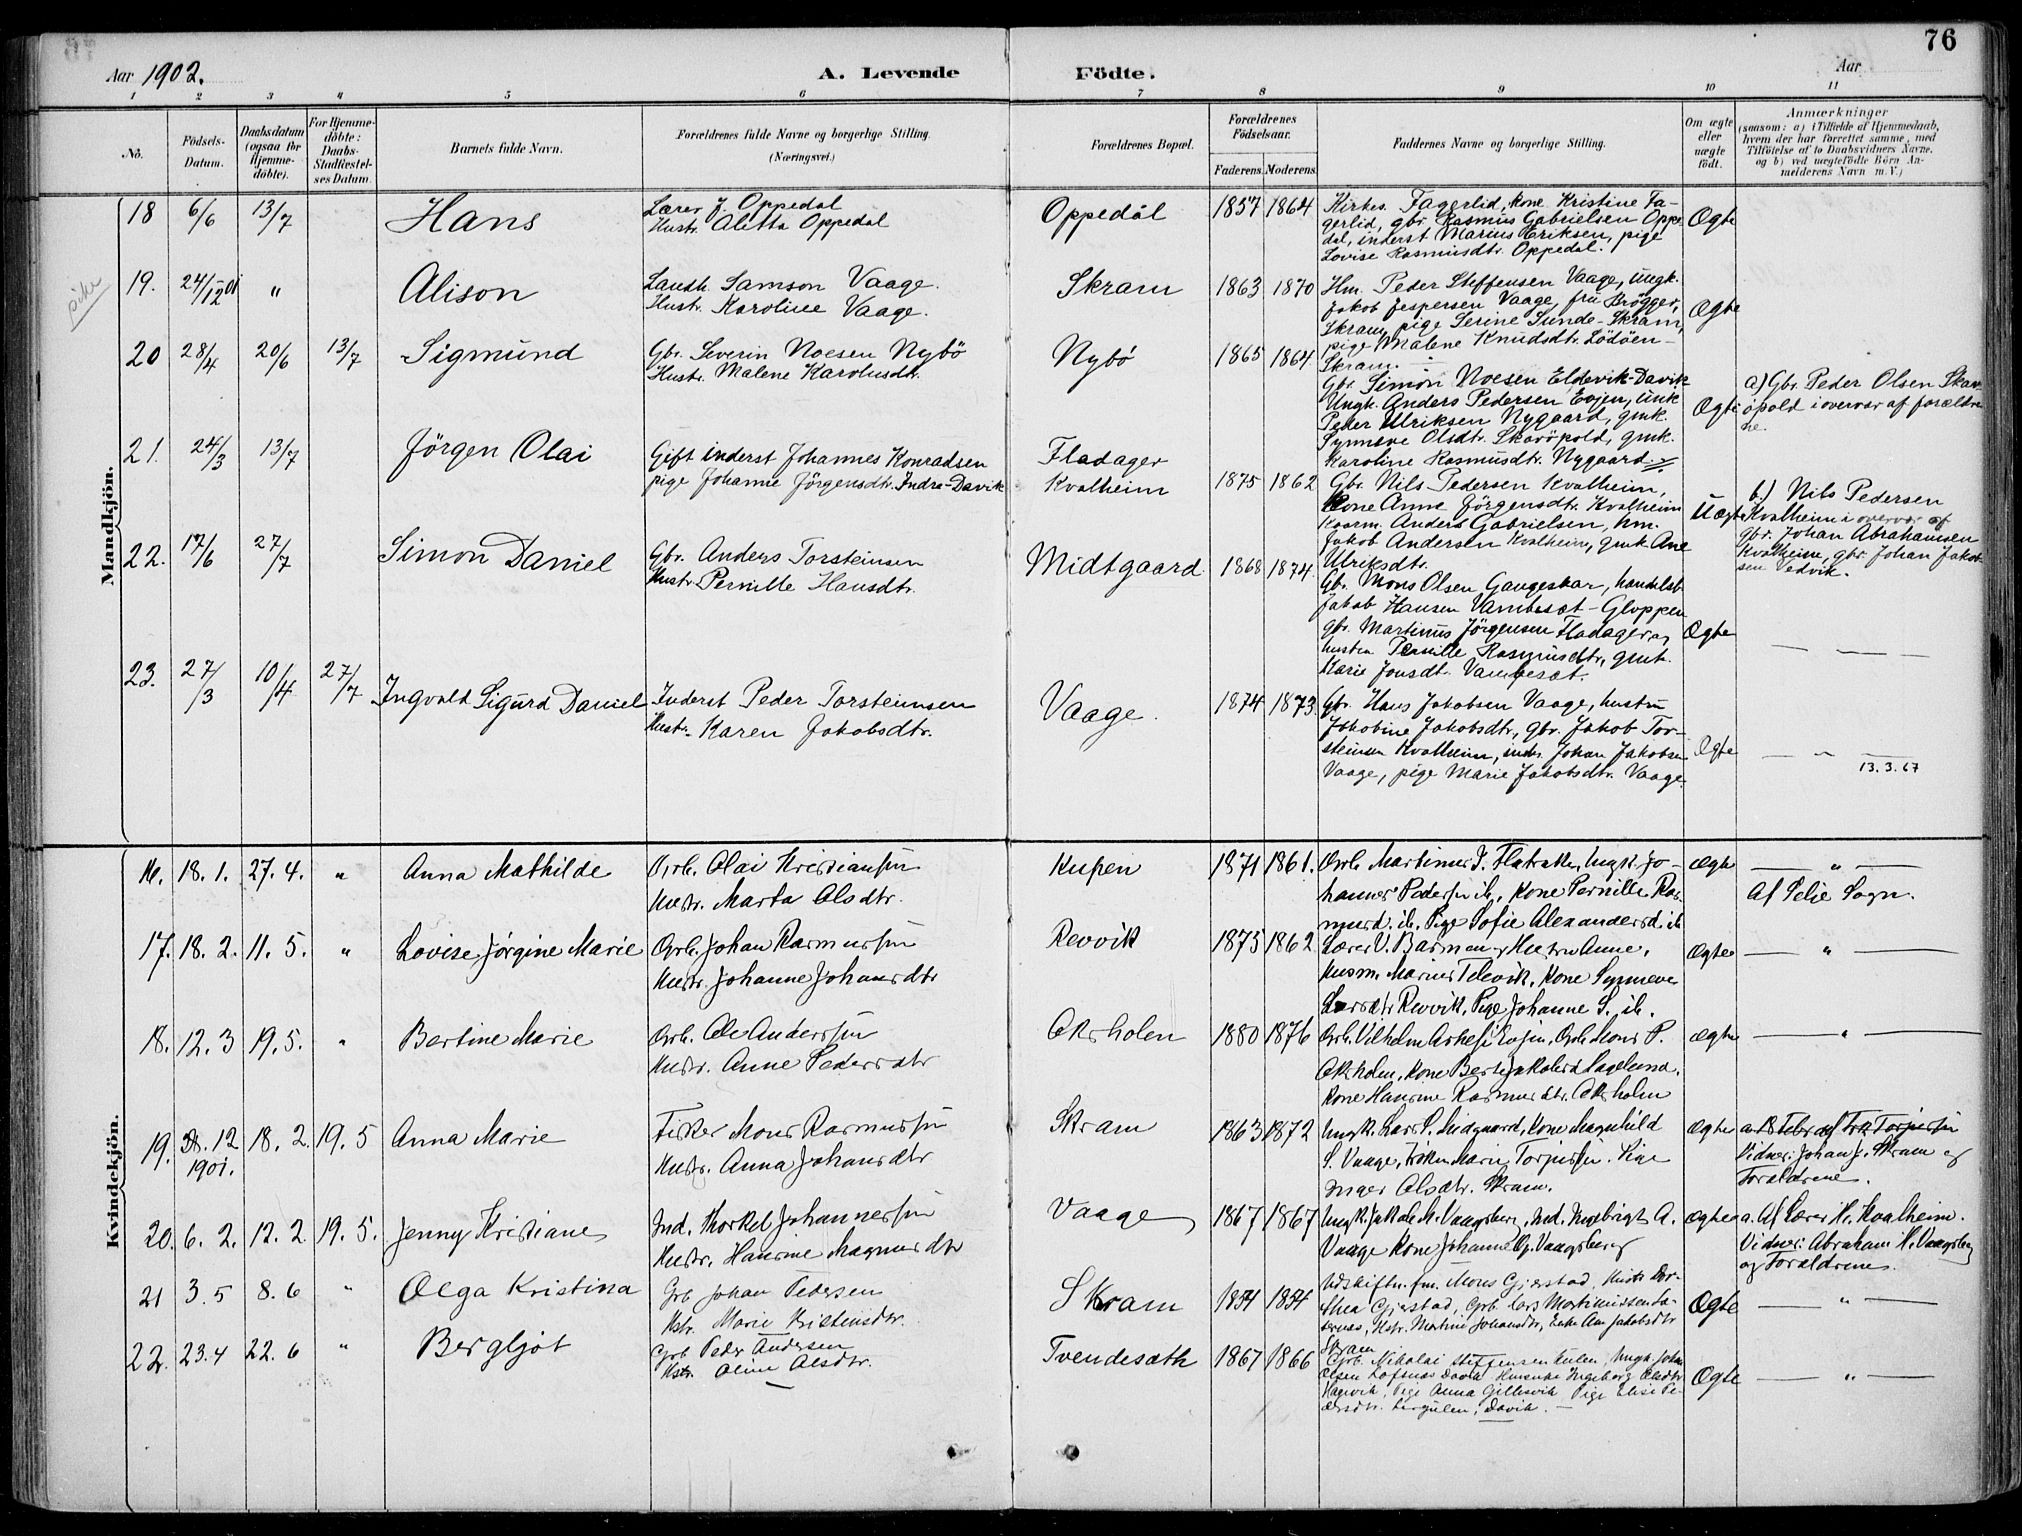 76
Aar 1902.
A. Levende Födte.
Aar
1 2 3 4 5 6 7 8 9 10 11
No.
Födsels-Datum.
Daabsdatum (ogsaa for Hjemmedöbte).
For Hjemmedöbte: Daabs-Stadfæstelses Datum.
Barnets fulde Navn.
Forældrenes fulde Navne og borgerlige Stilling. (Næringsvei.)
Forældrenes Bopæl.
Forældrenes Födselsaar.
Faderens. Moderens.
Faddernes Navne og borgerlige Stilling.
Om ægte eller uægte födt.
Anmærkninger
(saasom: a) i Tilfælde af Hjemmedaab, hvem der har forrettet samme, med Tilföielse af to Daabsvidners Navne. og b) ved uægtefödte Börn Anmelderens Navn m. V.)
Mandkjön.
18 6/6 13/7 Hans
Lærer J. Oppedal
Hustr. Aletta Oppedal
Oppedal 1857 1864
Kirkes. Fagerlid, kone Kristine Fa-
gerlid, gbr. Rasmus Gabrielsen Oppe-
dal, inderst Marius Eriksen, pige
Lovise Rasmusdtr. Oppedal.
Ægte
19. 24/12 01 " Alison
Landh. Samson Vaage.
Hustr. Karoline Vaage.
Skram 1863 1870
Hm. Peder Steffensen Vaage, ungk.
Jakob Jespersen Vaage, fru Brögger,
Skram, pige Serine Sunde-Skram,
pige Malene Knudsdtr. Lödöen-
Skram.
Ægte
20 28/4 20/6 13/7 Sigmund
Gbr. Severin Noesen Nybö
Hustr. Malene Karolusdtr.
Nybö 1865 1864
Gbr. Simon Noesen Eldevik-Davik
Ungk. Anders Pedersen Evjen, unk
Peder Ulriksen Nygaard, gmk.
Synneve Olsdtr. Skaröpold, gmk.
Karoline Rasmusdtr. Nygaard.
Ægte
a) Gbr. Peder Olsen Skar-
öpold i overvær af forældre-
ne.
21. 24/3 13/7 Jörgen Olai
Gift inderst Johannes Konradsen
pige Johanne Jörgensdtr. Indre-Davik
Fladager
Kvalheim 1875 1862
Gbr. Nils Pedersen Kvalheim,
kone Anne Jörgensdtr. Kvalheim
kaarm. Anders Gabrielsen, hm.
Jakob Andersen Kvalheim, gmk Ane
Ulriksdtr.
Uægte
b.) Nils Pedersen
Kvalheim i overvær af
gbr. Johan Abrahamsen
Kvalheim, gbr. Johan Jakob-
sen Vedvik.
22. 17/6 27/7 Simon Daniel
Gbr. Anders Torsteinsen
Hustr. Pernille Hansdtr.
Midtgaard 1868 1874
Gbr. Mons Olsen Gangeskar, handelsb.
Jakob Hansen Vambesæt-Gloppen
gbr. Martinus Jörgensen Fladager og
hustru Pernille Rasmusdtr, gmk.
Karie Jonsdt. Vambesæt.
Ægte
23. 27/3 10/4 27/7 Ingvald Sigurd Daniel
Inderst Peder Torsteinsen
Hustr. Karen Jakobsdtr.
Vaage. 1874 1873
Gbr. Hans Jakobsen Vaage, hustru
Jakobine Jakobsdtr, gbr. Jakob Tor-
steinsen Kvalheim, inds. Johan Jakobsen
Vaage, pige Marie Jakobsdtr. Vaage.
Ægte
— " — 13.3.67
Kvindekjön.
16. 18. 1. 27. 4. " Anna Mathilde
Grb. Olai Kristiansen
Hustr. Marta Olsdtr.
Kupen 1871 1861.
Grb. Martinus J. Flatraker, Ungk. Jo-
hannes Pedersen ib., Kone Pernille Ras-
musd. ib. Pige Sofie Alexandersd. ib
Ægte
— " —
Af Selje Sogn.
17. 18. 2. 11. 5. " Lovise Jörgine Marie
Grb. Johan Rasmussen
Hustr. Johanne Johansdtr
Revvik 1875 1862
Lærer V. Barman og Hustru Anne,
Husm. Marius Televik, Kone Synneve
Larsdtr Revvik, Pige Johanne S. ib.
Ægte — " —
18. 12. 3 19. 5. " Bertine Marie
Grb. Ole Andersen
Hustr. Anne Pedersdtr
Oksholen 1880 1876
Grb. Vilhelm Evjen, Grb. Mons P.
Oksholen, Kone
Kone Hansine Rasmusdtr. Oksholen
Ægte — " —
19. 12 1901. 18. 2. 19. 5 Anna Marie
Fisker Mons Rasmussen
Hustr. Anna Johansdtr
Skram 1863 1872
Ungk. Lars S. Midgaard, Kone Magnhild
S. Vaage, Marie Torjussen. Pige
Inger Olsdtr. Skram.
Ægte
Vidner: Johan J. Skram og
Forældrene.
20. 6. 2. 12. 2. 19. 5. Jenny Kristiane
Ind. Thorkel Johannessen
Hustr. Hansine Magnusdtr
Vaage 1867 1867
Ungk. Jakob M. Vaagsberg, Ind. Ingebrigt A.
Vaage Kone Johanne Vaagsberg
Ægte
a. Af Lærer H. Kvalheim.
Vidner: Abraham H. Vaagsberg
og Forældrene.
21 3. 5 8. 6 " Olga Kristina
Grb Johan Pedersen
Hstr. Marie Kristensdtr.
Skram 1854 1854
Udskiftn. fm. Mons Gjerstad, Hustr Dor-
thea Gjerstad, Grb. Lars Martinussen
Hstr. Martine Johansdtr, Enke Ane Jakobsdtr
Skram
Ægte — " —
22. 23. 4 22. 6 " Bergljot
Grb. Peder Andersen
Hstr. Oline Olsdtr.
Tvendesæth 1867 1866
Grb. Nikolai Steffensen Hulen, Ungk. Johan
Olsen Davik Ingeborg Olsdtr
Hagevik, Pige Anna Gillesvik Pige Elise Pe-
dersdtr. Davik.
Ægte — " —